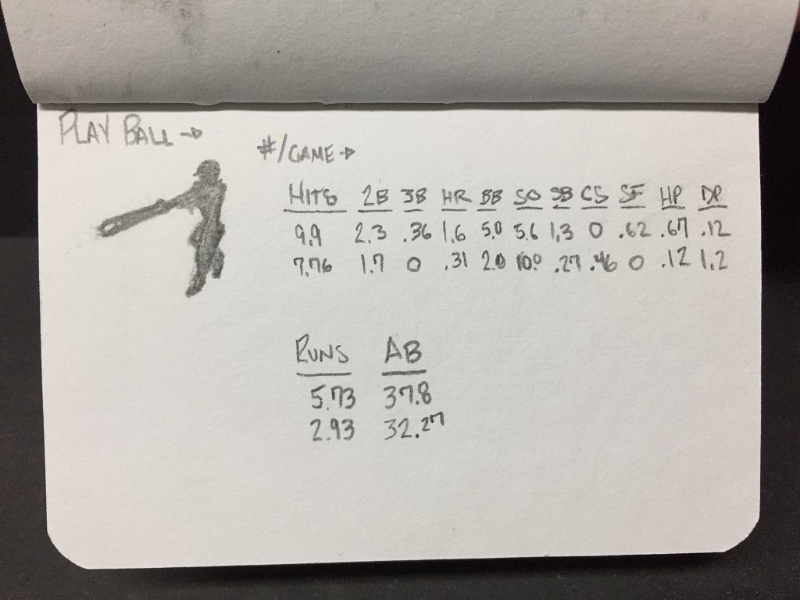 PLAY BALL →
#/GAME →
HITS 2B 3B HR BB SO SB CS SF HP DP
9.9 2.3 .36 1.6 5.0 5.6 1.3 0 .62 .67 .12
7.76 1.7 0 .31 2.0 10.0 .27 .46 0 .12 1.2
RUNS AB
5.73 37.8
2.93 32.27